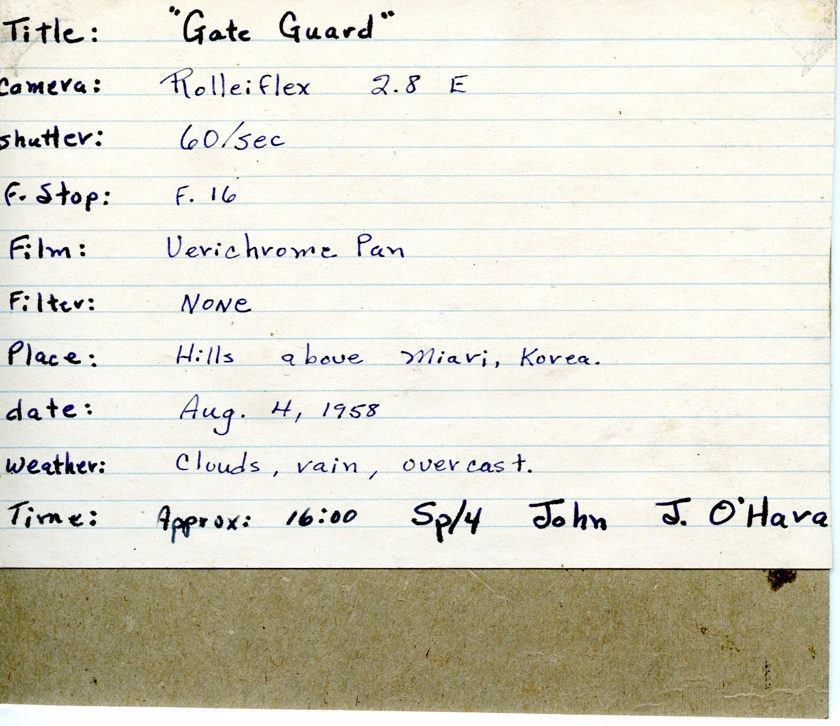 Title: "Gate Guard"
Camera: Rolleiflex 2.8 E
shutter: 60/sec
F. Stop: F. 16
Film: Verichrome Pan
Filter: NONE
Place: Hills above Miari, Korea.
date: Aug. 4, 1958
weather: Clouds, rain, overcast.
Time: Approx: 16:00 Sp/4 John J. O'Hara